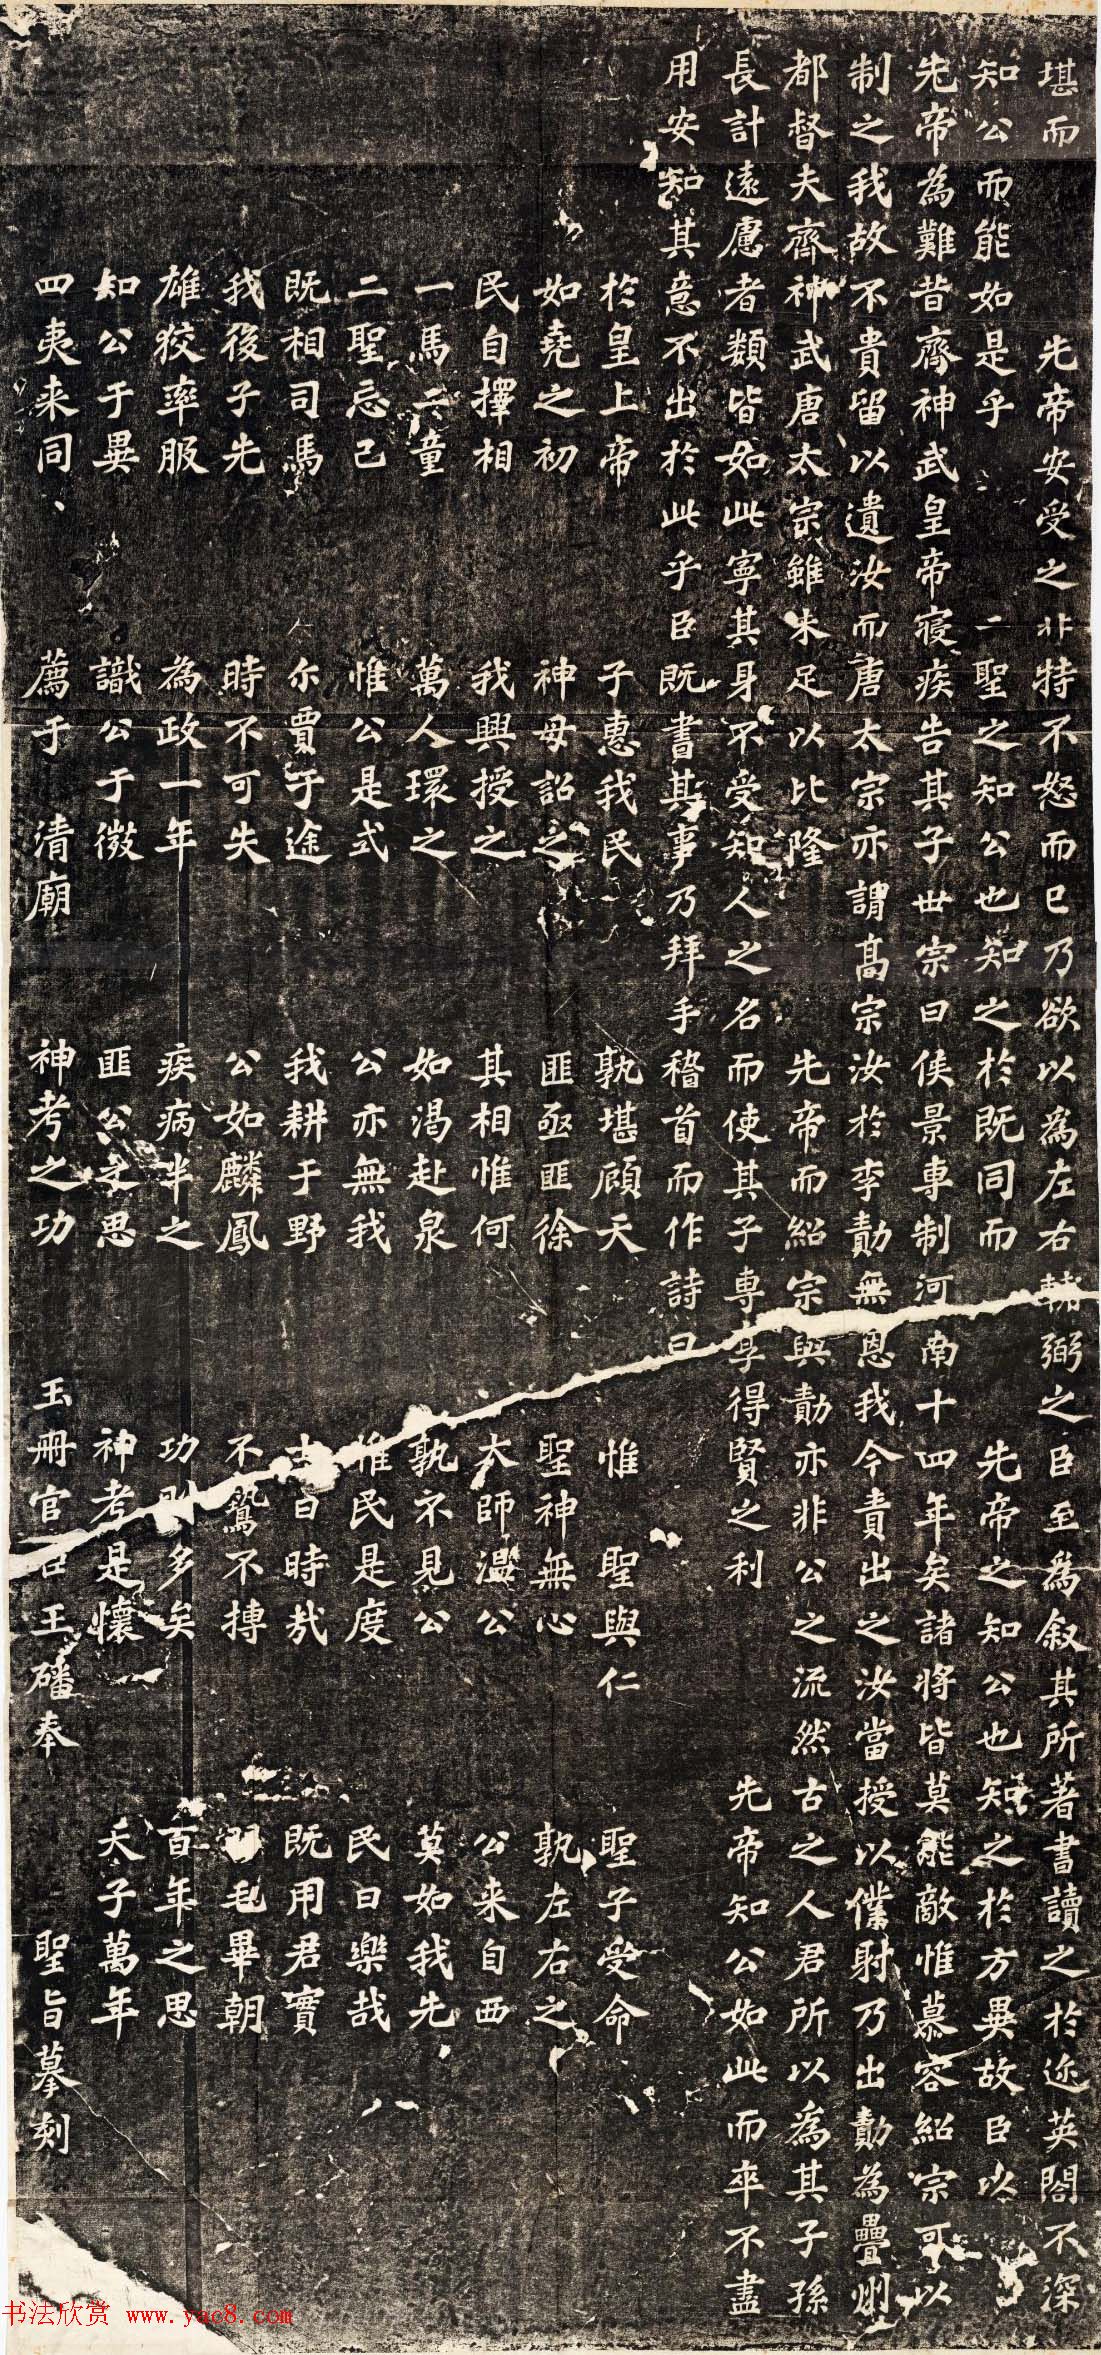 堪而 先帝安受之非特不怒而已乃欲以為左右輔弼之臣至為叙其所著書讀之於迩英閤不深
知公而能如是乎 二聖之知公也知之於既同而 先帝之知公也知之於方異故臣以
先帝為難昔齊神武皇帝寢疾告其子世宗曰侯景專制河南十四年矣諸將皆莫能敵惟慕容紹宗可以
制之我故不貴留以遺汝而唐太宗亦謂高宗汝於李勣無恩我今責出之汝當授以僕射乃出勣為疊州
都督夫齊神武唐太宗雖未足以比隆 先帝而紹宗與勣亦非公之流然古之人君所以為其子孫
長計遠慮者類皆如此寧其身不受知人之名而使其子專享得賢之利 先帝知公如此而卒不盡
用安知其意不出於此乎臣既書其事乃拜手稽首而作詩曰
於皇上帝 子惠我民 孰堪顧天 惟聖與仁 聖子受命
如堯之初 神母詔之 匪亟匪徐 聖神無心 孰左右之
民自擇相 我興授之 其相惟何 太師溫公 公来自西
一馬二童 萬人環之 如渴赴泉 孰不見公 莫如我先
二聖忘己 惟公是式 公亦無我 惟民是度 民曰樂哉
既相司馬 尔賈于途 我耕于野 士曰時哉 既用君實
我後子先 時不可失 公如麟鳳 不鷙不搏 羽毛畢朝
雄狡率服 為政一年 疾病半之 功則多矣 百年之思
知公于異 識公于微 匪公之思 神考是懷 天子萬年
四夷来同、 薦于 清廟 神考之功 玉冊官臣王磻奉 聖旨摹刻
书法欣赏 www.yac8.com